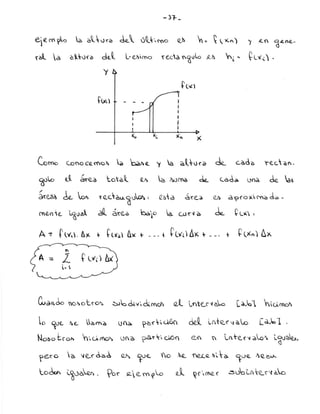 -37-
ejemplo la altura del último es h = f(xn) y en gene-
ral la altura del i-esimo rectangulo es hi = f(xi).
y
f(x)
f(xi)
x0 xi xn x
Como conocemos la base y la altura de cada rectan-
gulo el área total es la suma de cada una de las
áreas de los rectangulos. esta área es aproximada-
mente igual al área bajo la curva de f(x).
A = f(x1).Δx + f(x2) Δx + ... + f(xi)Δx + ... + f(xn) Δx
A = Σ f(xi) Δx
n
i=1
Cuando nosotros subdividimos el intervalo [a,b] hicimos
lo que se llama una partición del intervalo [a,b].
Nosotros hicimos una partición en n intervalos iguales,
pero la verdad es que no se necesita que sean
todos iguales. Por ejemplo el primer subintervalo